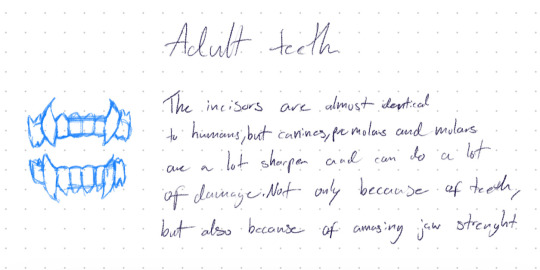 Adult teeth
The incisors are almost identical
to humans, but canines, premolars and molars
are a lot sharper and can do a lot
of damage. Not only because of teeth,
but also because of amasing jaw strenght.